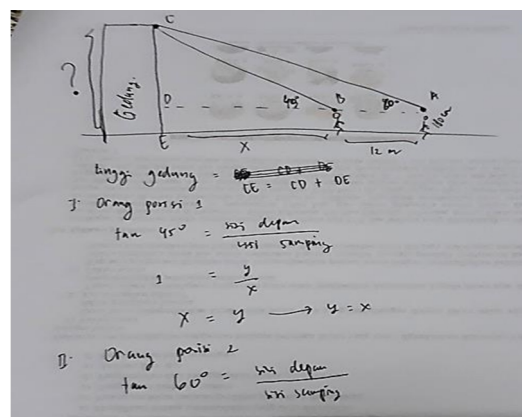 C
?
Gedung
D 45° B A
E
X 12 m
tinggi gedung =
CE = CD + DE
I. Orang posisi 1
tan 45° = sisi depan
sisi samping
1 = y
x
x = y → y = x
II. Orang posisi 2
tan 60° = sisi depan
sisi samping